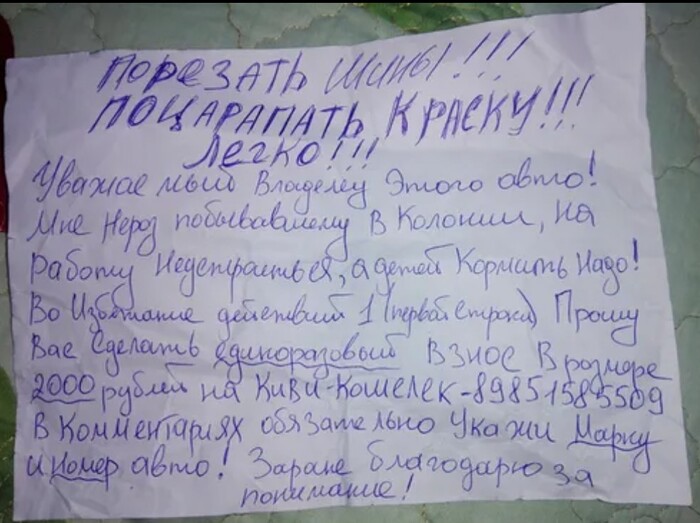 ПОРЕЗАТЬ ШИНЫ!!!
ПОЦАРАПАТЬ КРАСКУ!!!
ЛЕГКО!!!
Уважаемый Владелец Этого авто!
Мне Нераз побывавшему в Колонии, на
работу Неустраиться, а детей Кормить Надо!
Во Избежание действий 1 (первой строки) Прошу
Вас Сделать единоразовый взнос в розмере
2000 рублей на Киви-кошелек-89851585509
В Комментариях обязательно Укажи Марку
и номер авто! Заране благодарю за
понимание!